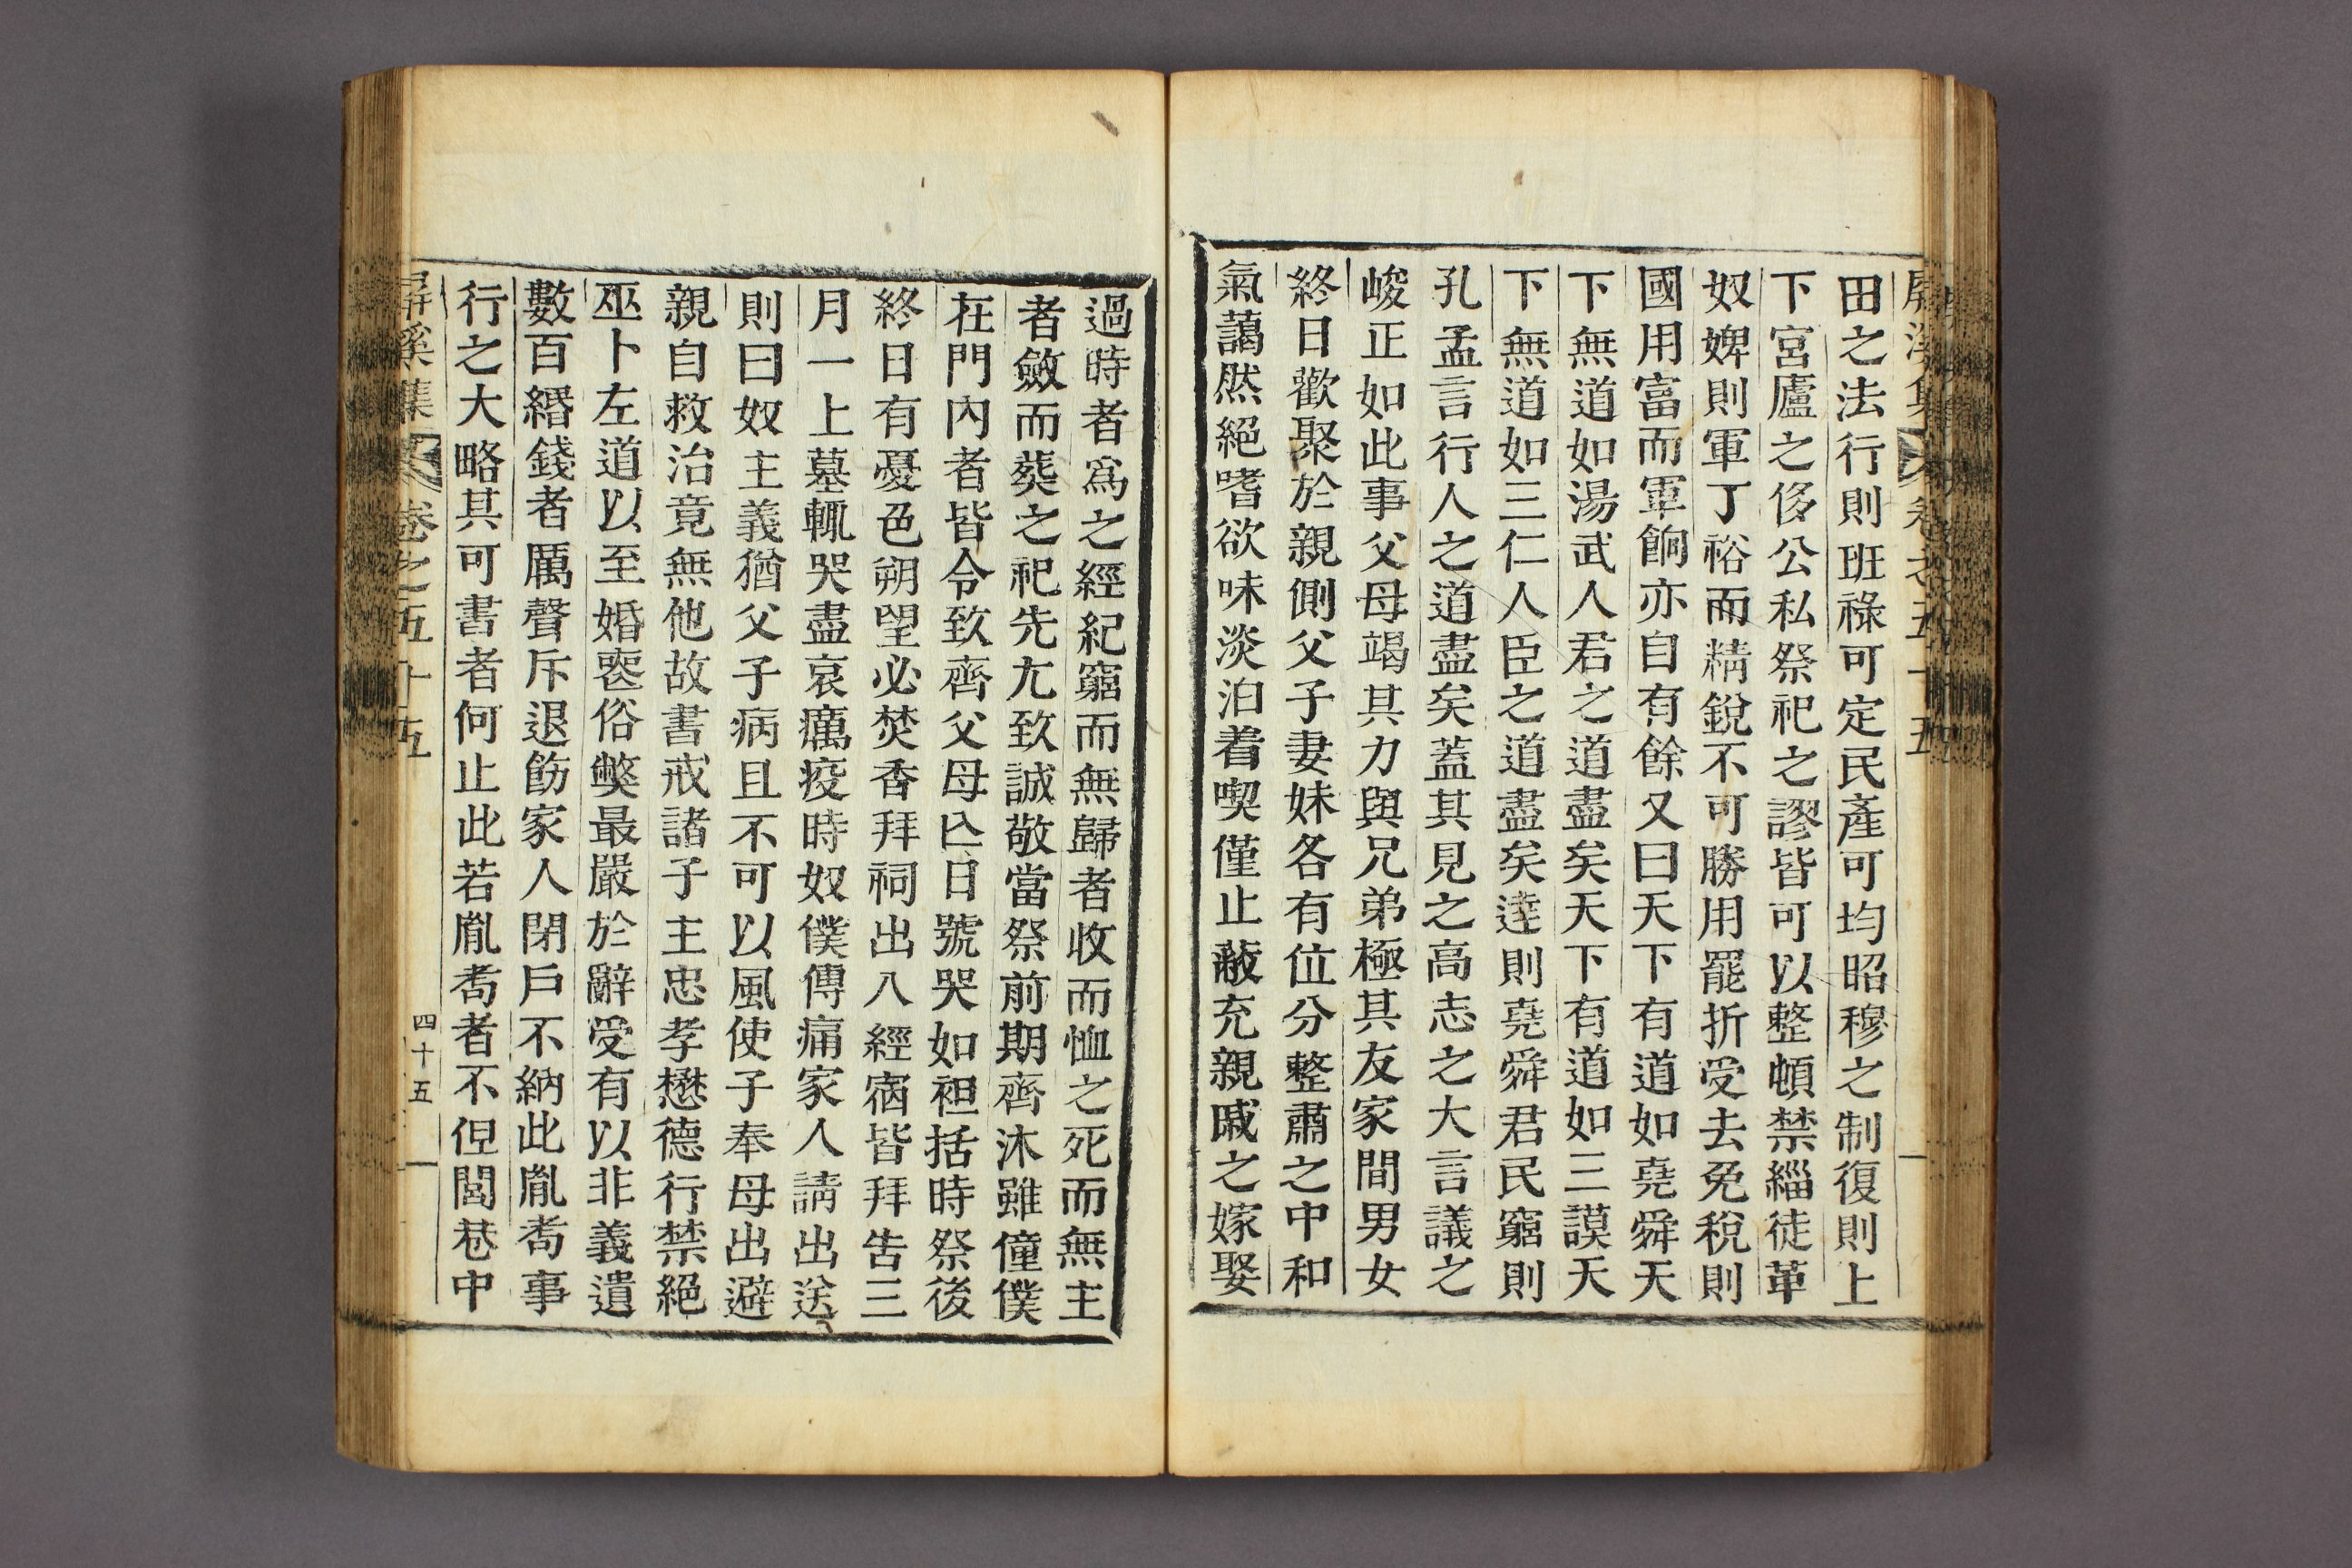 田之法行則班祿可定民產可均昭穆之制復則上
下宮廬之侈公私祭祀之謬皆可以整頓禁緇徒革
奴婢則軍丁裕而精銳不可勝用罷折受去免稅則
國用富而軍餉亦自有餘又曰天下有道如堯舜天
下無道如湯武人君之道盡矣天下有道如三謨天
下無道如三仁人臣之道盡矣達則堯舜君民窮則
孔孟言行人之道盡矣蓋其見之高志之大言議之
峻正如此事父母竭其力與兄弟極其友家間男女
終日歡聚於親側父子妻妹各有位分整肅之中和
氣藹然絕嗜欲味淡泊着喫僅止蔽充親戚之嫁娶
過時者爲之經紀窮而無歸者收而恤之死而無主
者斂而葬之祀先尢致誠敬當祭前期齊沐雖僮僕
在門內者皆令致齊父母亾日號哭如袒括時祭後
終日有憂色朔望必焚香拜祠出入經宿皆拜告三
月一上墓輒哭盡哀癘疫時奴僕傳痛家人請出送
則曰奴主義猶父子病且不可以風使子奉母出避
親自救治竟無他故書戒諸子主忠孝懋德行禁絕
巫卜左道以至婚喪俗獘最嚴於辭受有以非義遺
數百緡錢者厲聲斥退飭家人閉戶不納此胤耉事
行之大略其可書者何止此若胤耉者不但閭巷中
屛溪集 卷之五十五 四十五